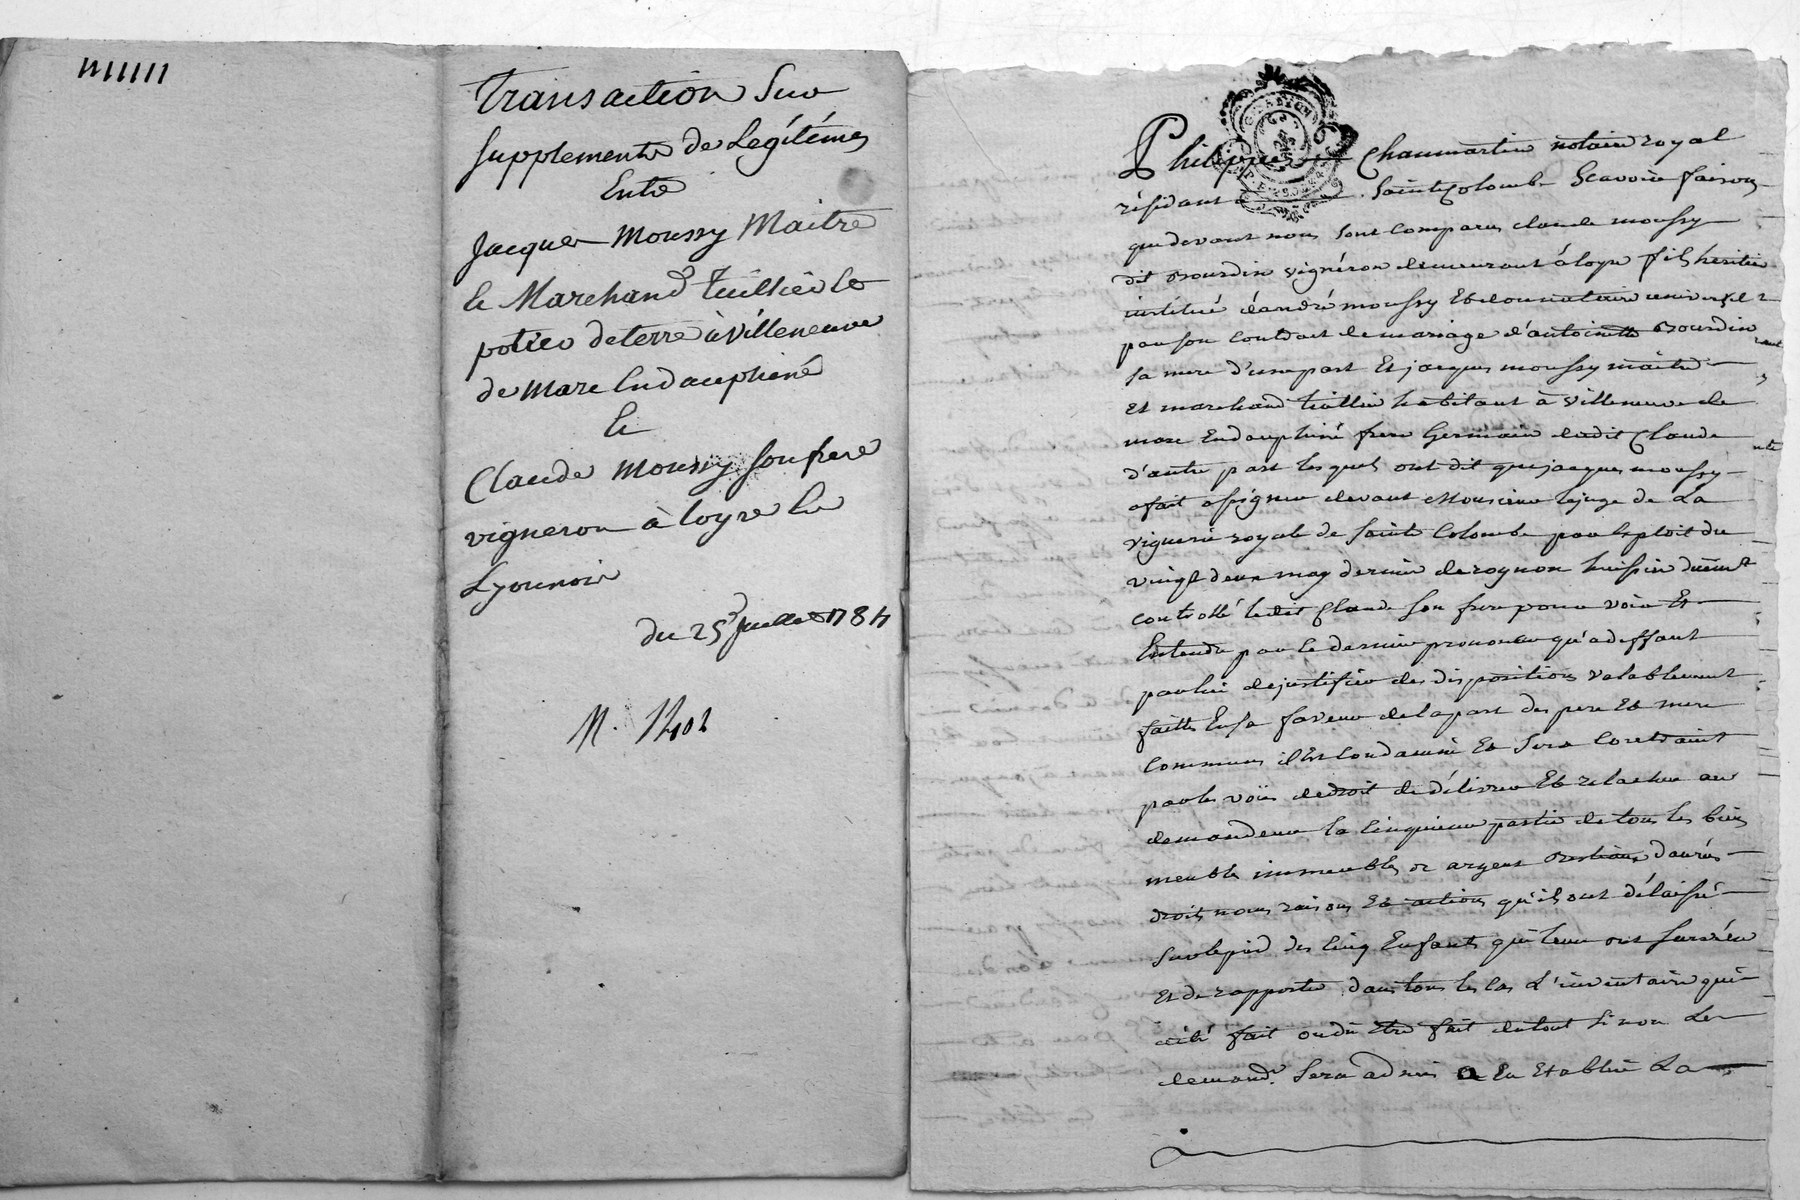 Transaction Sur
supplement de Legitimes
Entre
Jacques Moussy Maitre
le Marchand tuillier et
potier de terre à Villeneuve
de Marc En dauphiné
Et
Claude Moussy son frere
vigneron à Loyre En
Lyonnois
du 25 Juillet 1784
N. 1402
Philippe Chaumartin notaire royal
résidant Sainte Colombe Scavoir faisons
que devant nous sont comparus claude moussy
dit Bourdin vigneron demeurant à loyre fils heritier
institué d'andré moussy Et donnataire universel
par son contract de mariage d'antoinette Bourdin
sa mere d'une part Et jacques moussy maitre
et marchand tuillier habitant à Villeneuve de
marc En dauphiné frere Germain dudit Claude
d'autre part lesquels ont dit que jacques moussy
a fait assigner devant Monsieur le juge de La
viguerie royale de Sainte Colombe par Exploit du
vingt deux may dernier de rognon huissier duëment
controllé ledit Claude son frere pour voir Et
Entendre par le dernier prononcer qu'a deffaut
par lui de justifier des dispositions valablement
faittes En sa faveur de la part des pere Et mere
Communs il Est Condamné Et sera Contraint
par les voïes de droit de délivrer Et relacher au
demandeur la Cinquieme partie de tous les biens
meubles immeubles or argent d'aurés
droits noms raisons Et actions qu'ils ont délaissé
Sur le pied des Cinq Enfants qui leur ont survécu
Et de rapporter dans tous les cas L'inventaire qui
a été fait ou dû Etre fait du tout Sinon Le
demand.r Sera admis a En Etablir La